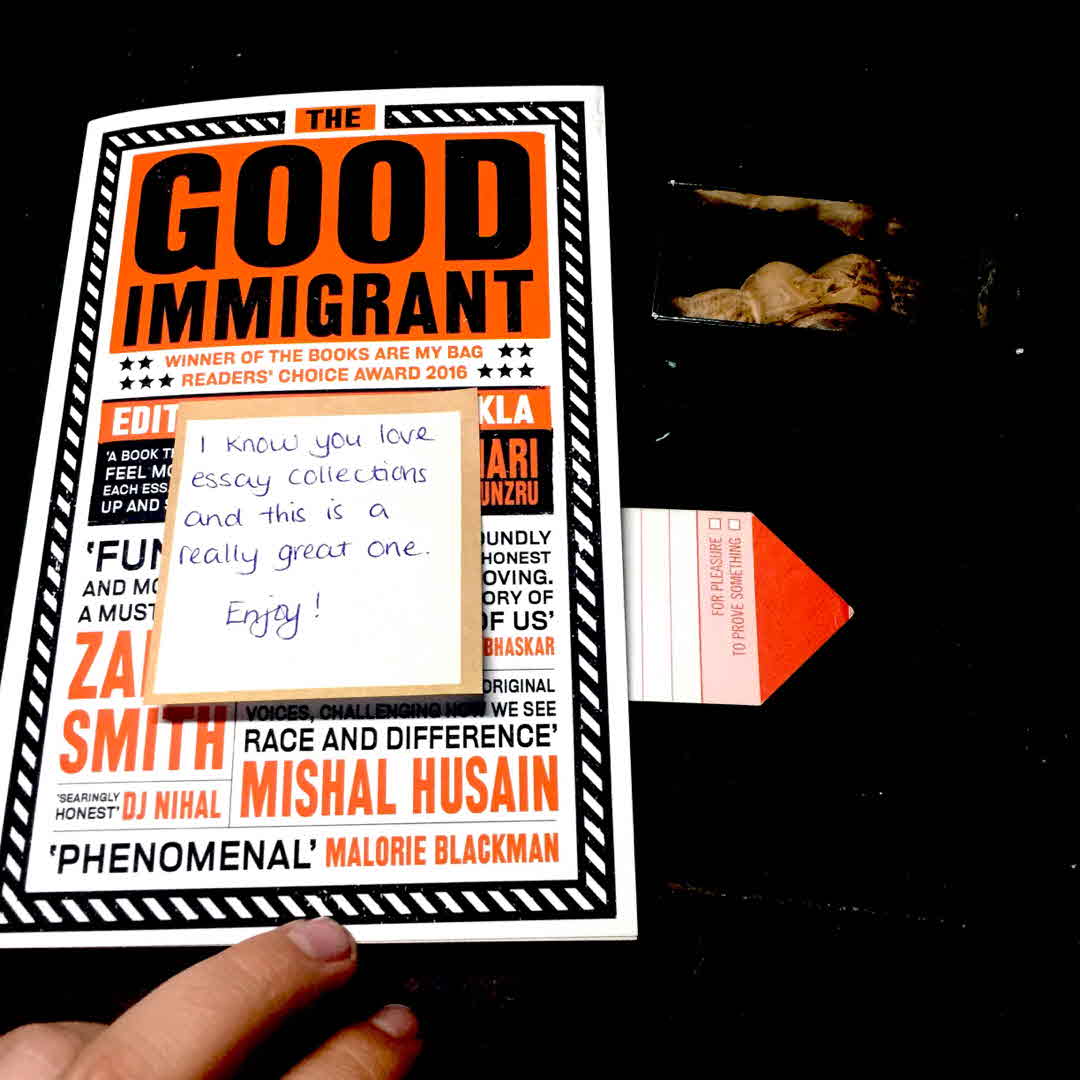 THE
GOOD
IMMIGRANT
WINNER OF THE BOOKS ARE MY BAG
READERS' CHOICE AWARD 2016
EDIT KLA
'A BOOK
FEEL
EACH
UP AND
ARI
UNZRU
I know you love
essay collections
and this is a
really great one.
Enjoy!
'FUN
AND
A MUST
ZA
SMITH
OUNDLY
HONEST
OVING.
ORY OF
OF US'
BHASKAR
ORIGINAL
VOICES, CHALLENGING HOW WE SEE
RACE AND DIFFERENCE'
MISHAL HUSAIN
'SEARINGLY
HONEST' DJ NIHAL
'PHENOMENAL' MALORIE BLACKMAN
FOR PLEASURE
TO PROVE SOMETHING